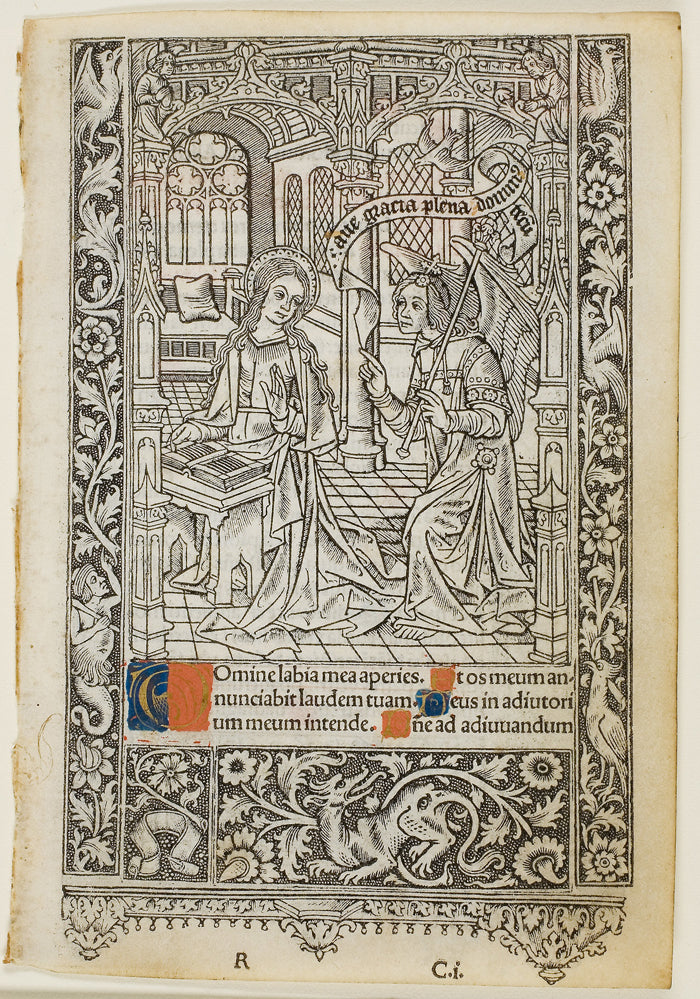 aue gracia plena dominꝰ tecū
Domine labia mea aperies. Et os meum an-
nunciabit laudem tuam. Deus in adiutori
um meum intende. Dñe ad adiuuandum
R C.i.